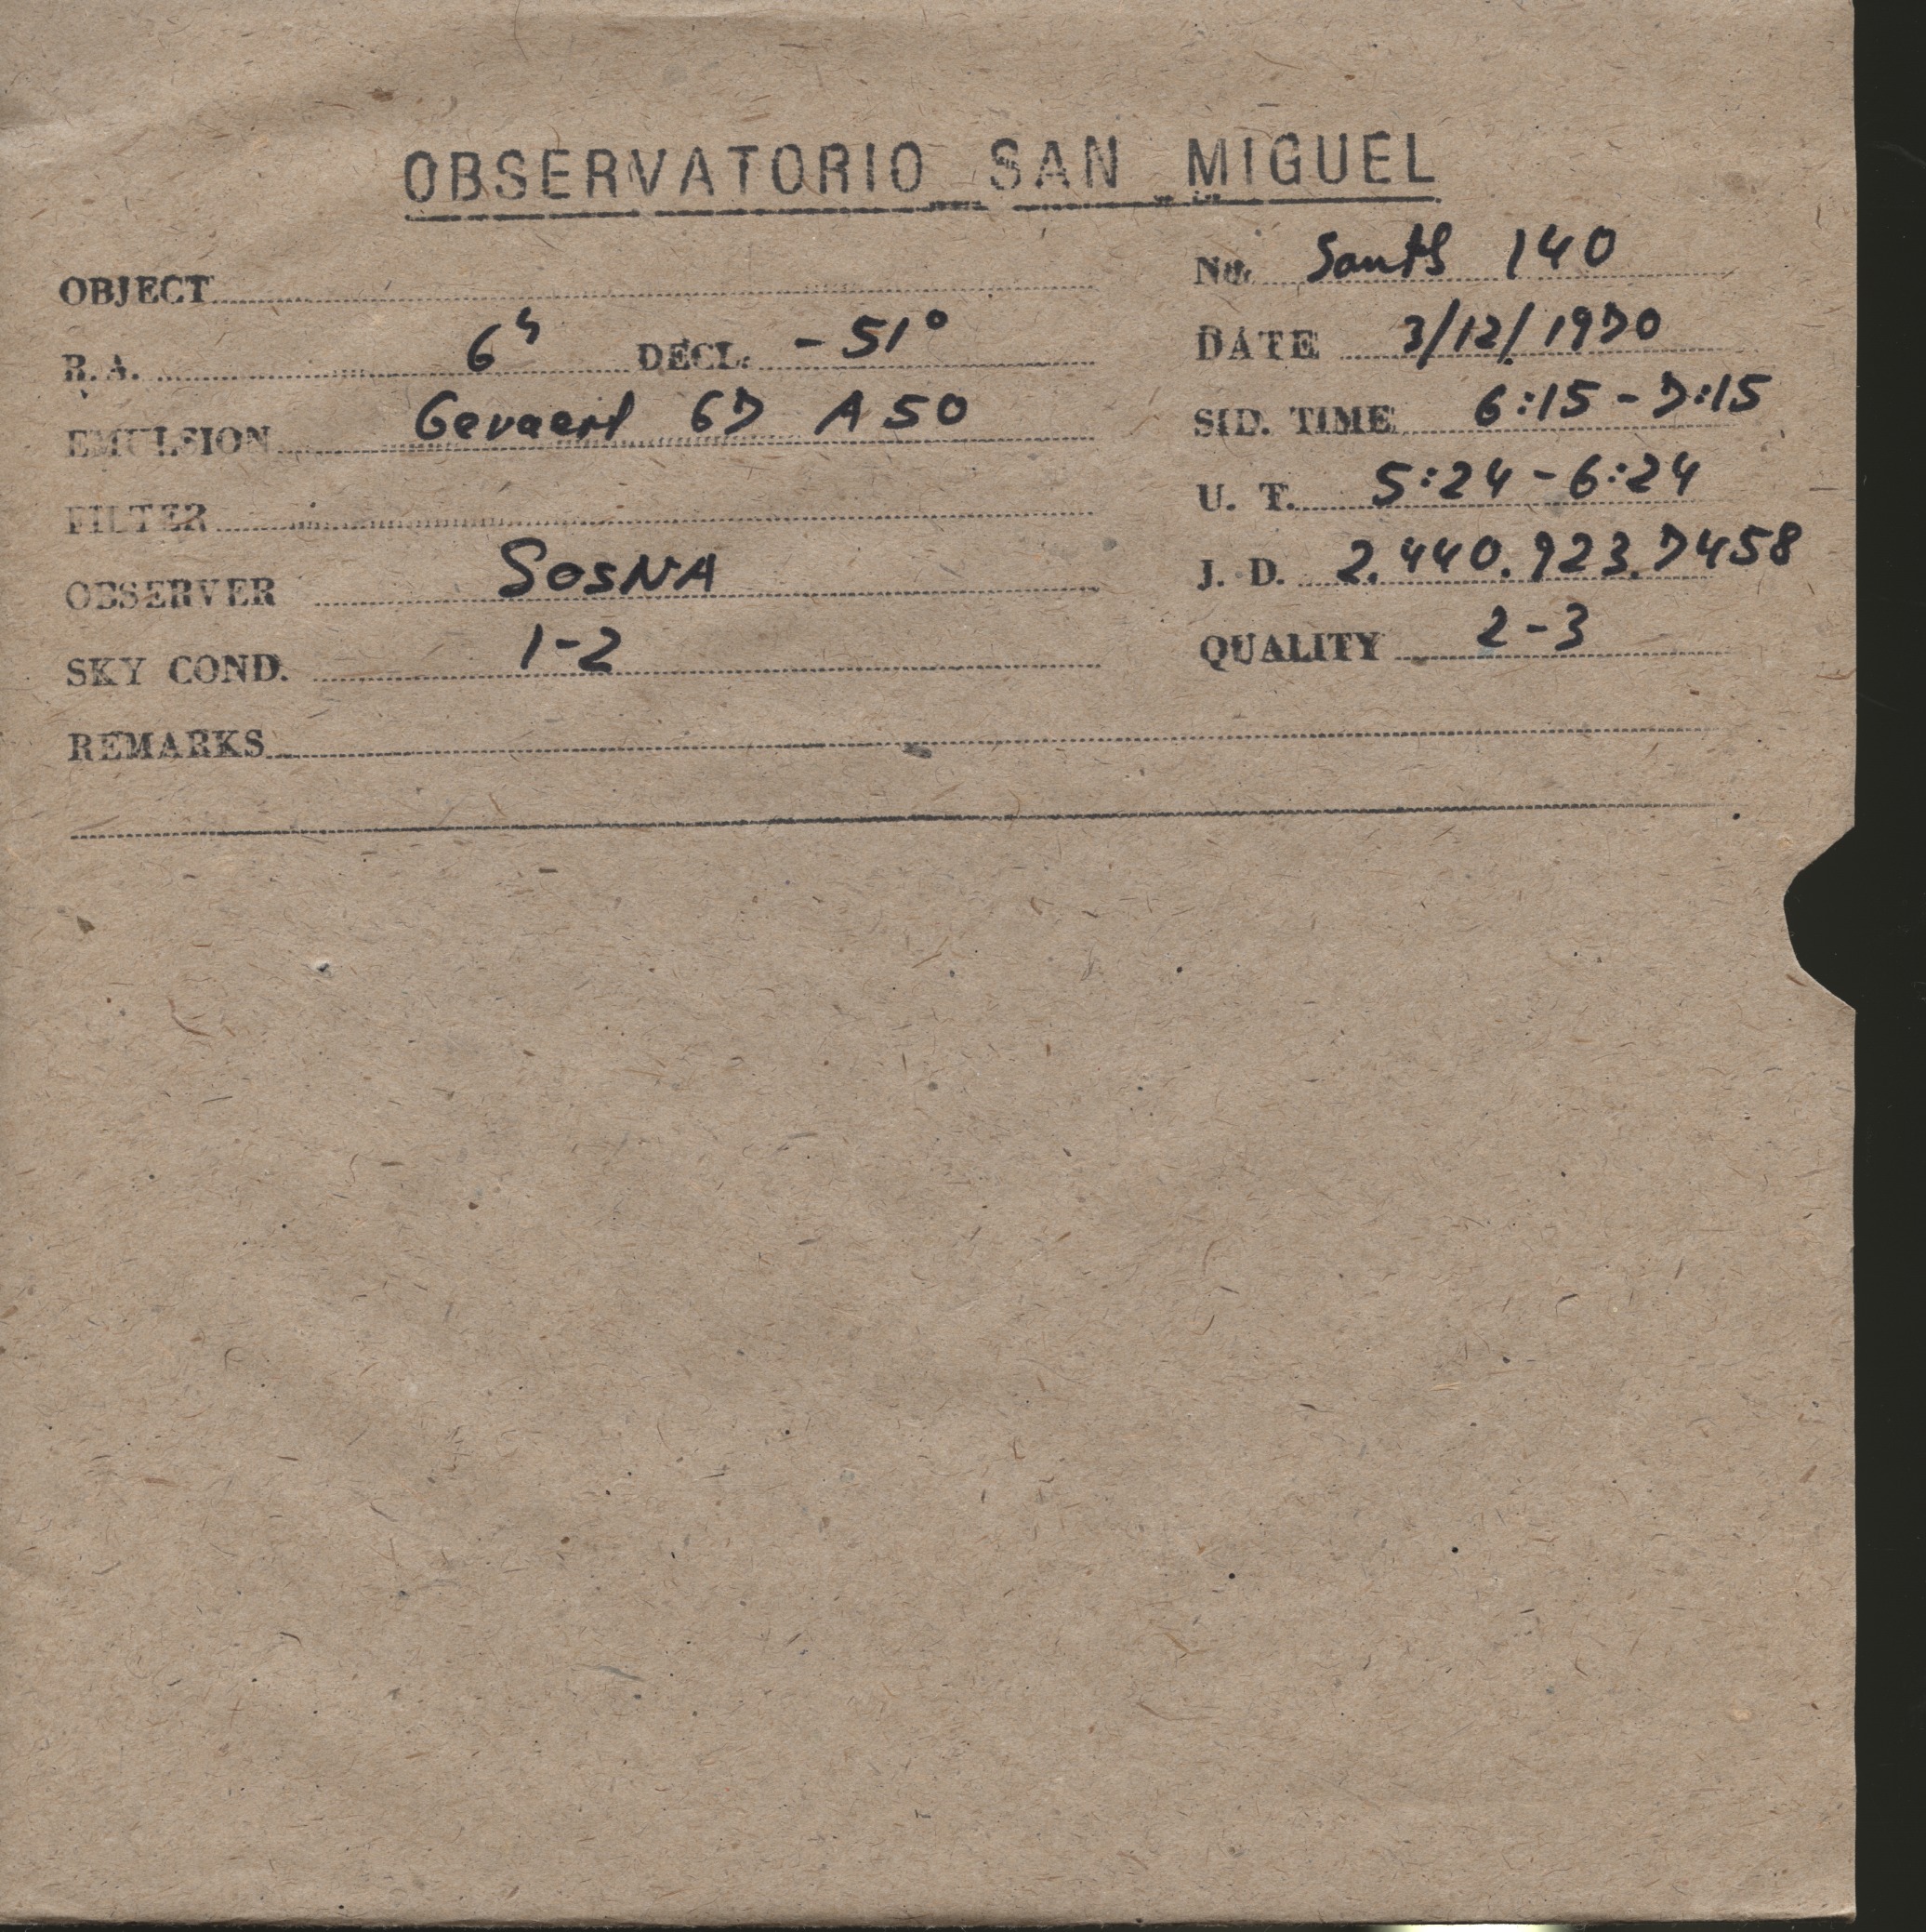 OBSERVATORIO SAN MIGUEL
OBJECT
No. South 140
R.A. 6h DECL. -51°
DATE 3/12/1970
EMULSION Gevaert 67 A 50
SID. TIME 6:15-7:15
FILTER
U. T. 5:24-6:24
OBSERVER SOSNA
J. D. 2.440.923.7458
SKY COND. 1-2
QUALITY 2-3
REMARKS